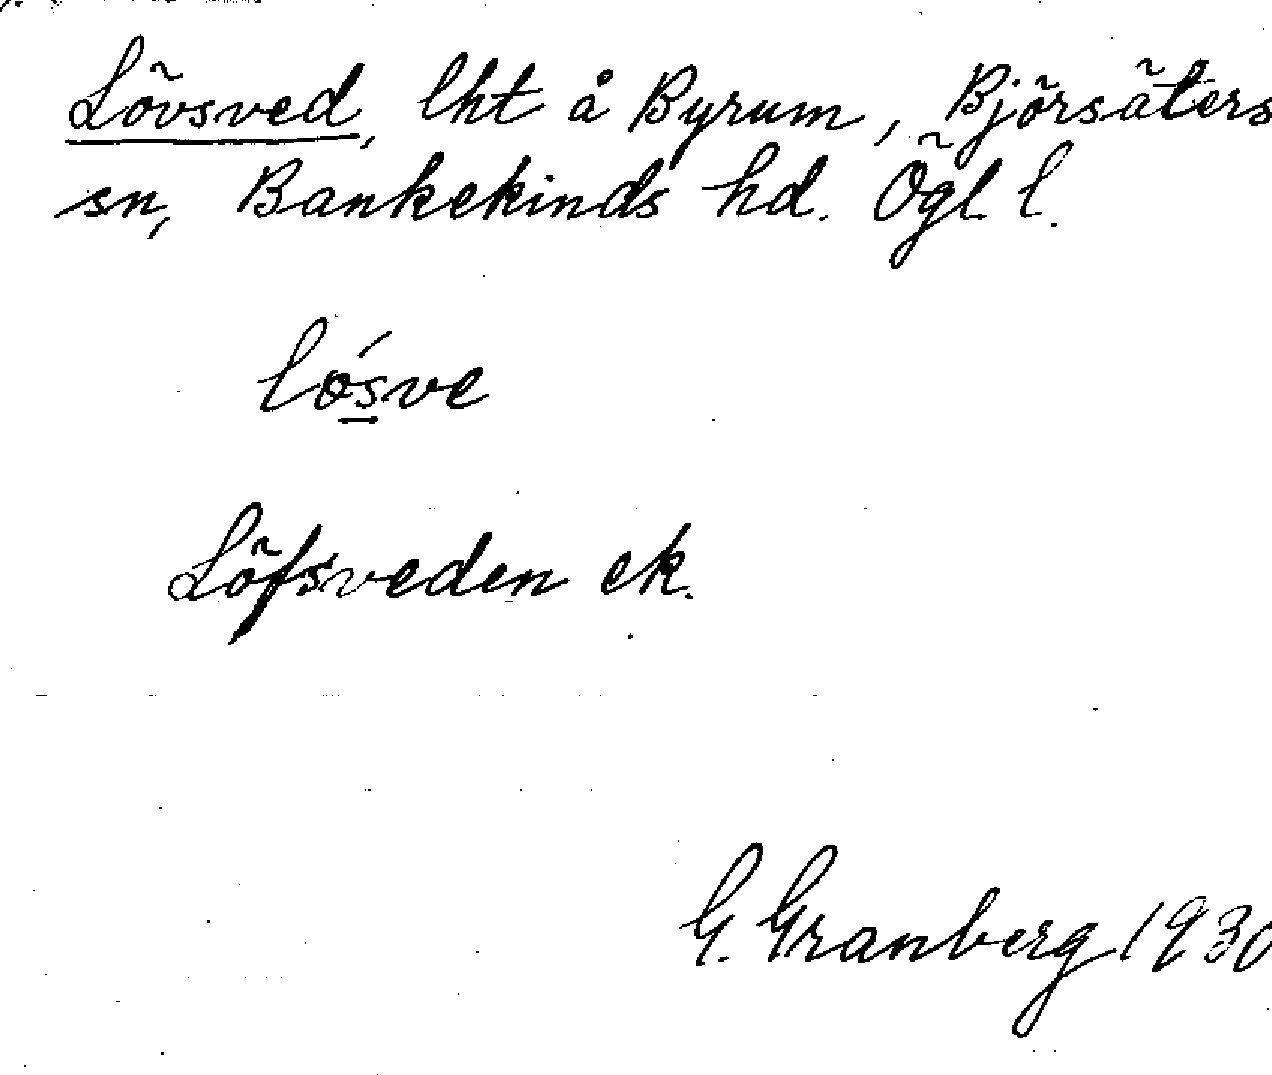 Lövsved, lht å Byrum, Björsäters
sn, Bankekinds hd. Ögl l.
lósve
Löfsveden ek.
G. Granberg 1930